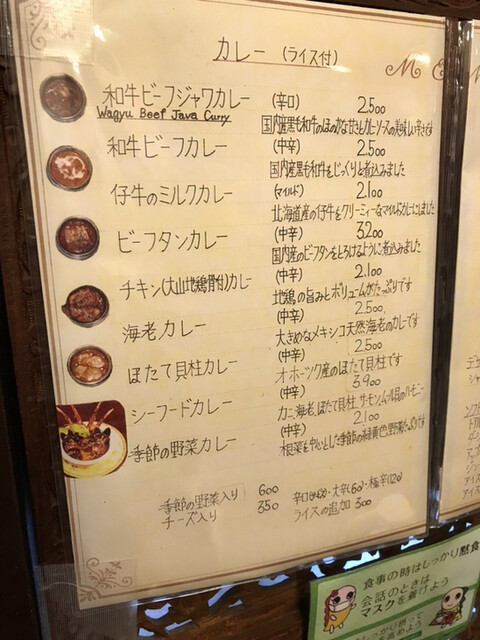 カレー (ライス付)
M E
和牛ビーフジャワカレー (辛口) 2,500
Wagyu Beef Java Curry
国内産黒毛和牛のほのかな甘さとカレーソースの美味しい辛さです
和牛ビーフカレー (中辛) 2,500
国内産黒毛和牛をじっくりと煮込みました
仔牛のミルクカレー (マイルド) 2,100
北海道産の仔牛をクリーミィーなマイルドカレーにしました
ビーフタンカレー (中辛) 3,200
国内産のビーフタンをとろけるように煮込みました
チキン(大山地鶏骨付)カレー (中辛) 2,100
地鶏の旨みとボリュームがたっぷりです
海老カレー (中辛) 2,500
大きめなメキシコ天然海老のカレーです
ほたて貝柱カレー (中辛) 2,500
オホーツク産のほたて貝柱です
シーフードカレー (中辛) 3,900
カニ、海老、ほたて貝柱、サーモン、ムール貝のハーモニー
季節の野菜カレー (中辛) 2,100
根菜を中心とした季節の緑黄色野菜たっぷりです
季節の野菜入り 600
チーズ入り 350
ライスの追加 300
食事の時はしっかり黙食
会話のときは
マスクを着けよう